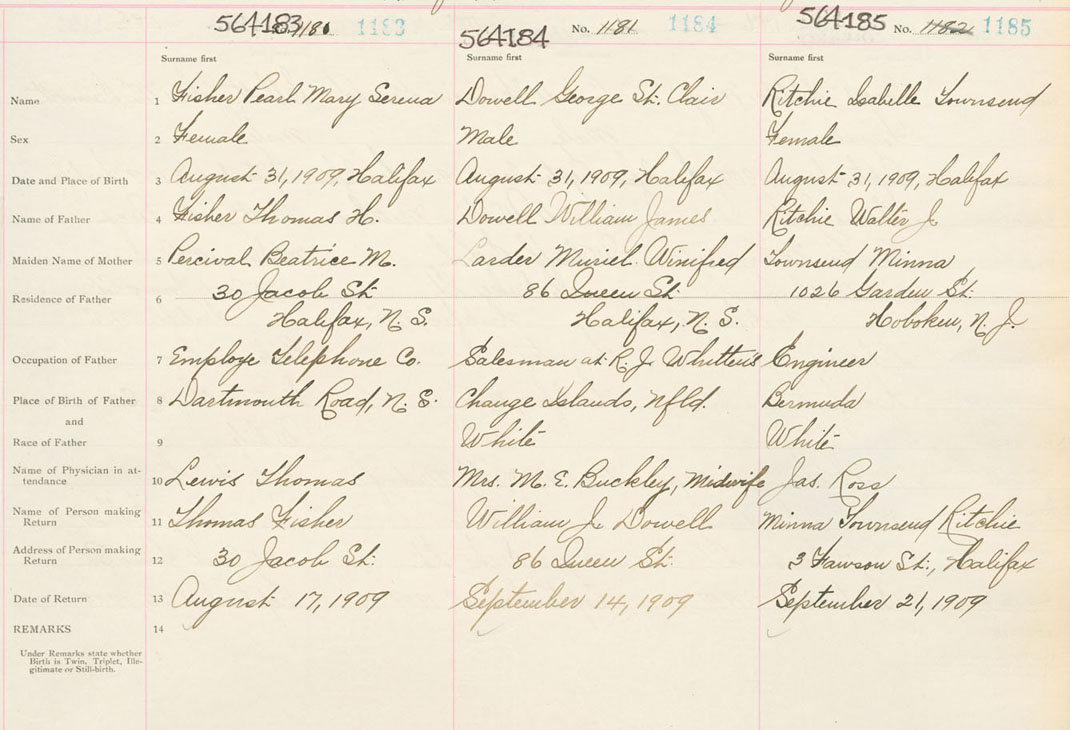 564183 1180 1183 564184 No. 1181 1184 564185 No. 1182 1185
Surname first Surname first Surname first
Name 1 Fisher Pearl Mary Serena Dowell George St. Clair Ritchie Isabelle Townsend
Sex 2 Female Male Female
Date and Place of Birth 3 August 31, 1909, Halifax August 31, 1909, Halifax August 31, 1909, Halifax
Name of Father 4 Fisher Thomas H. Dowell William James Ritchie Walter J.
Maiden Name of Mother 5 Percival Beatrice M. Larder Muriel Winifred Townsend Minna
Residence of Father 6 30 Jacob St. 86 Queen St. 1026 Garden St.
Halifax, N. S. Halifax, N. S. Hoboken, N. J.
Occupation of Father 7 Employe Telephone Co. Salesman at R. J. Whittens Engineer
Place of Birth of Father 8 Dartmouth Road, N. S. Change Islands, Nfld. Bermuda
and
Race of Father 9 White White
Name of Physician in at-
tendance 10 Lewis Thomas Mrs. M. E. Buckley, Midwife Jas. Ross
Name of Person making
Return 11 Thomas Fisher William J. Dowell Minna Townsend Ritchie
Address of Person making
Return 12 30 Jacob St. 86 Queen St. 3 St., Halifax
Date of Return 13 August 17, 1909 September 14, 1909 September 21, 1909
REMARKS 14
Under Remarks state whether
Birth is Twin, Triplet, Ille-
gitimate or Still-birth.